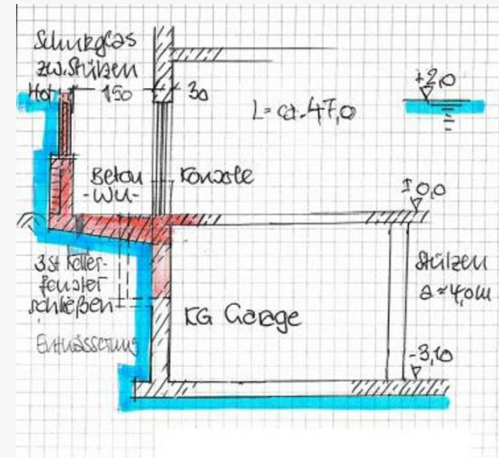 Schutzglas
zw. Stützen
150
30
L= ca. 47,0
+2,0
Beton
-WU-
Konsole
± 0,0
3 St Keller-
fenster
schließen
Entwässerung
KG Garage
Stützen
a ≈ 4,0m
-3,10